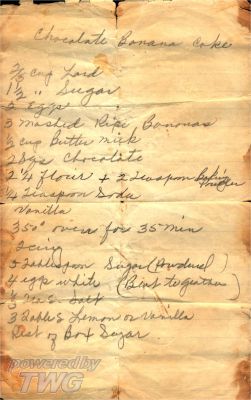 Chocolate Banana Cake
2/3 cup Lard
1 1/2 " Sugar
2 Eggs
3 Mashed Ripe Bananas
1/2 cup Butter milk
2 Sqs Chocolate
2 1/4 flour + 2 Teaspon Baking Powder
1/4 Teaspon Soda
Vanilla
350° oven for 35 min
Icing
5 Tablespon Sugar (Powdered)
4 egg white (Beat together)
Salt
3 Tables Lemon or Vanilla
Rest of Box Sugar
powered by
TWG